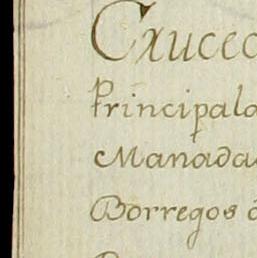 Cxucec
Principala
Manada
Borregos